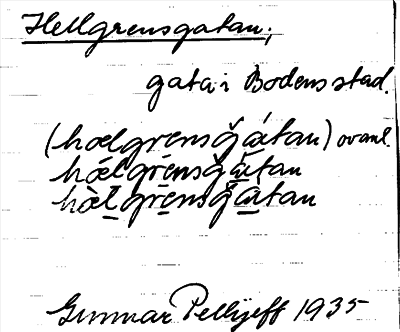 Hellgrensgatan,
gata i Bodens stad.
(hælgrensgatan) ovanl.
hælgrensgatan
hælgrensgatan
Gunnar Pellijeff 1935